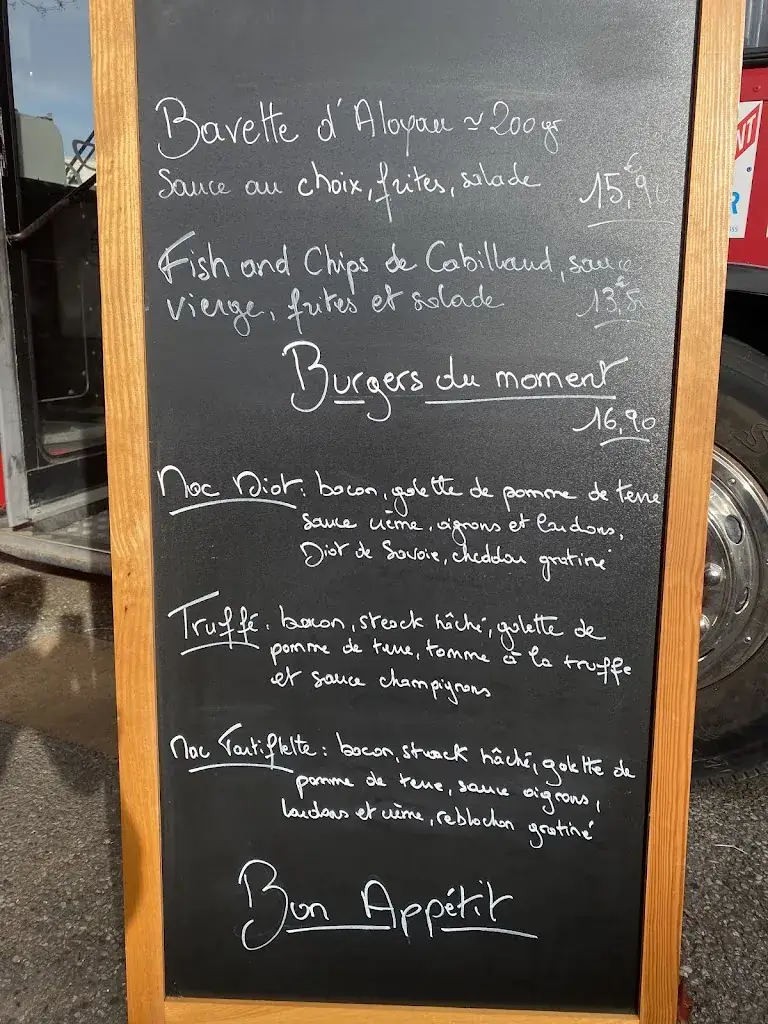 Bavette d'Aloyau ≈ 200gr
Sauce au choix, frites, salade 15,90€
Fish and Chips de Cabillaud, sauce
vierge, frites et salade 13,5€
Burgers du moment
16,90
Mac Diot : bacon, galette de pomme de terre
sauce crème, oignons et lardons,
Diot de Savoie, cheddar gratiné
Truffé : bacon, steack hâché, galette de
pomme de terre, tomme à la truffe
et sauce champignons
Mac Tartiflette : bacon, steack hâché, galette de
pomme de terre, sauce oignons,
lardons et crème, reblochon gratiné
Bon Appétit